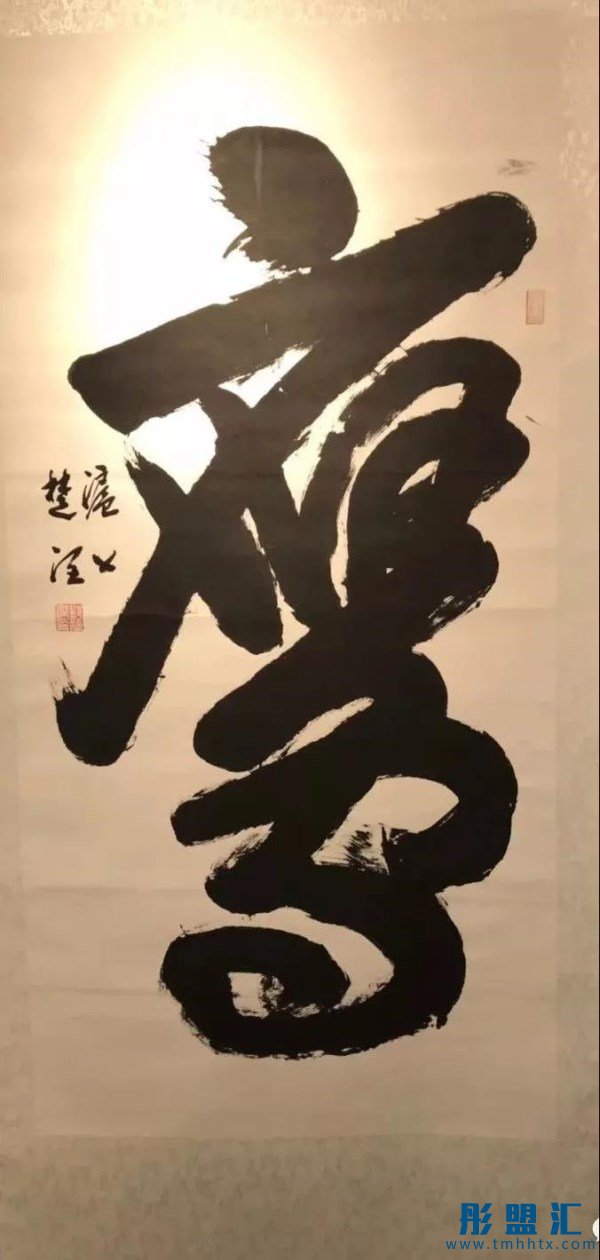 鷹
楚
彤盟汇
www.tmhhtx.com